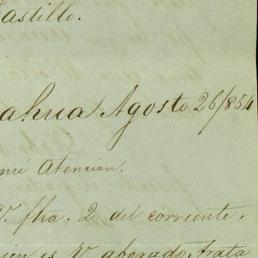 Castillo.
ahua Agosto 26/854
mi Atencion.
V. fha. 2 del corriente,
es V. abogado, trata